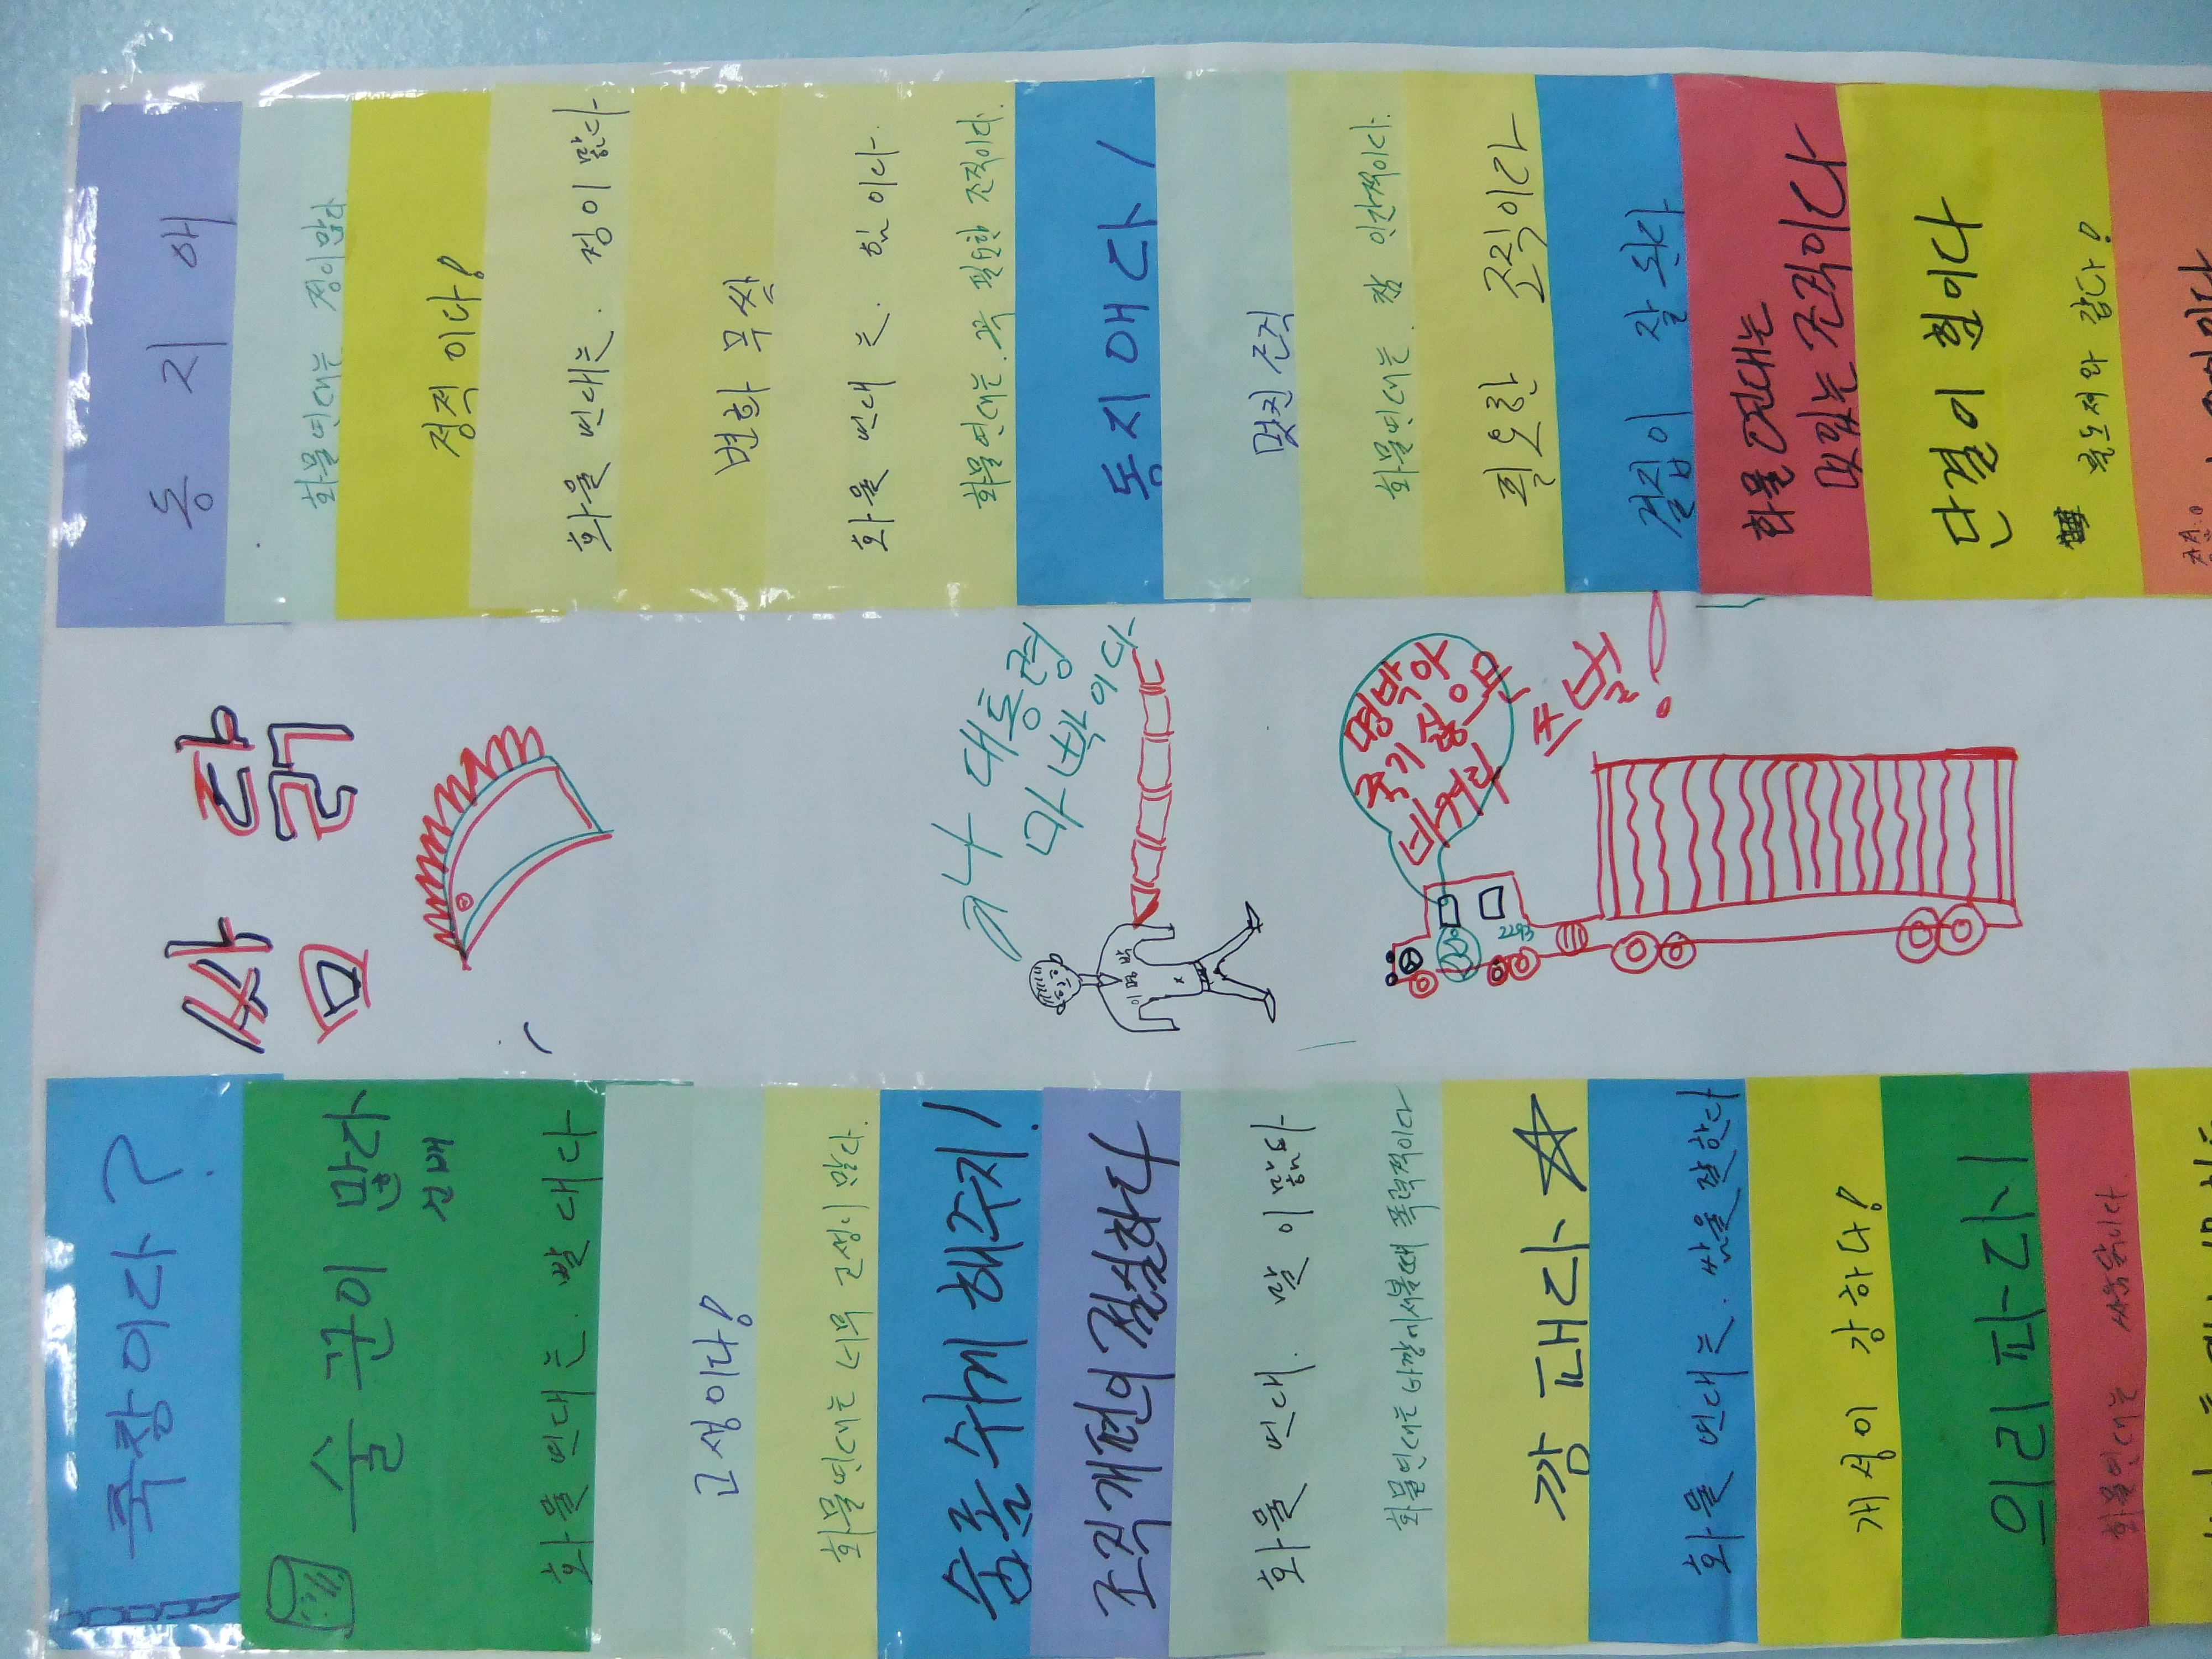 죽창이다?
술꾼이 많다
화물연대는. 빨대다
고생이다!
화물연대는 너무 고생이 많다.
숨좀쉬게 해주지!
조직개편의 절실하다
화물연대. 말이 많다
화물연대는 바깥에서볼때 폭력적이다
깡패다
화물연대는. 싸움을 잘한다
개성이 강하다!
의리파다!
화물연대는 싸움닭이다
쌈닭
대통령
마빡이다
이명박
명박아
죽기싫으면
비켜라
2293
동지애
화물연대는 정이 많다
정적이다!
화물연대는. 정이 많다
변화무쌍
화물연대는. 힘이다.
화물연대는. 꼭 필요한 조직이다.
동지애다!
멋진 조직
화물연대는. 참 인간적이다.
필요한 조직이다
결집이 잘 된다
화물연대는
멋있는 조직이다
단결이 힘이다
용도저와 같다!